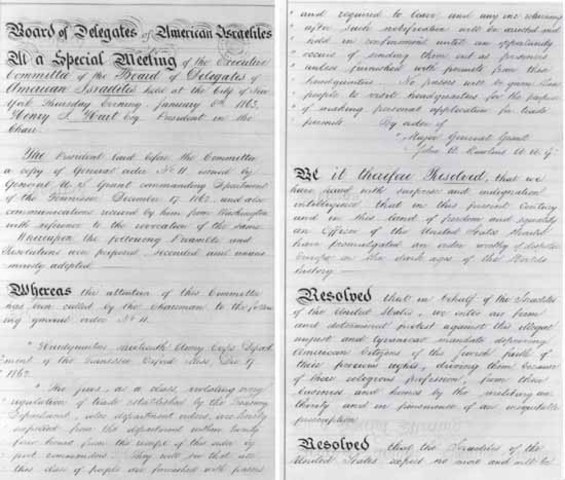 Board of Delegates of American Israelites
At a Special Meeting of the Executive
Committee of the Board of Delegates of
American Israelites held at the City of New
York Thursday Evening January 8th 1863.
Henry I. Hart Esq. President in the
Chair
The President laid before the Committee
a copy of General order No 11 issued by
General U. S. Grant commanding Department
of the Tennessee December 17 1862, and also
communications received by him from Washington
with reference to the revocation of the same
Whereupon the following Preamble and
Resolutions were proposed, seconded and unani-
mously adopted
Whereas the attention of this Committee
has been called by the Chairman to the follow
ing general order No 11.
" Headquarters thirteenth Army Corps Depart
ment of the Tennessee Oxford Miss. Dec 17
1862
" The Jews, as a class, violating every
regulation of trade established by the Treasury
Department, also department orders, are hereby
expelled from the department within twenty
four hours from the receipt of this order by
post commanders. They will see that all
this class of people are furnished with passes
" and required to leave, and any one returning
" after such notification will be arrested and
" held in confinement until an opportunity
" occurs of sending them out as prisoners
" unless furnished with permits from these
" headquarters. No passes will be given these
" people to visit headquarters for the purpose
" of making personal application for trade
" permits. By order of
" Major General Grant
" John A. Rawlins A. A. G."
Be it therefore Resolved, that we
have heard with surprise and indignation
intelligence that in this present Century
and in this land of freedom and equality
an Officer of the United States should
have promulgated an order worthy of despotic
Europe in the dark ages of the Worlds
history
Resolved that in behalf of the Israelites
of the United States, we enter our firm
and determined protest against this illegal
unjust and tyrannical mandate depriving
American Citizens of the Jewish faith of
their precious rights, driving them because
of their religious profession, from their
business and homes by the military au
thority and in pursuance of an inequitable
proscription
Resolved that the Israelites of the
United States expect no more and will be